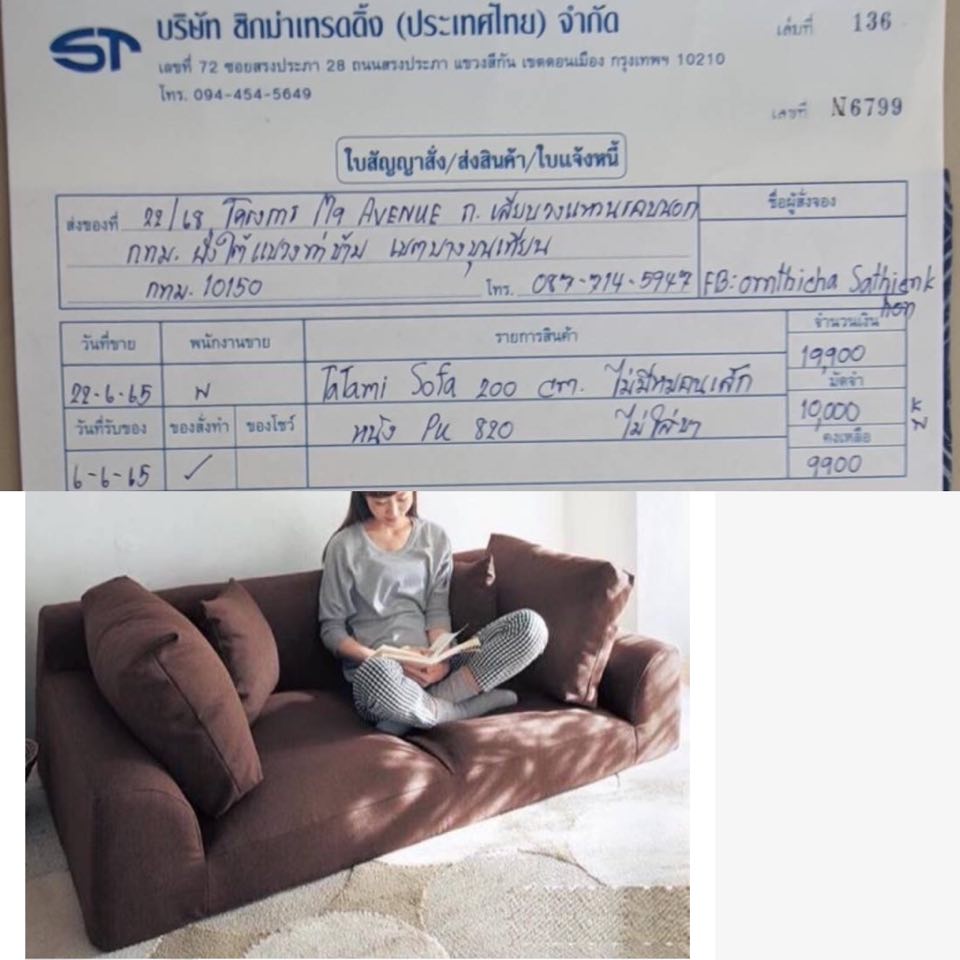 ST
บริษัท ซิกม่าเทรดดิ้ง (ประเทศไทย) จำกัด
เล่มที่ 136
เลขที่ 72 ซอยสรงประภา 28 ถนนสรงประภา แขวงสีกัน เขตดอนเมือง กรุงเทพฯ 10210
โทร. 094-454-5649
เลขที่ N6799
ใบสัญญาสั่ง/ส่งสินค้า/ใบแจ้งหนี้
ส่งของที่ 22/68 โครงการ AVENUE ถ. เลียบวงแหวนรอบนอก
ชื่อผู้สั่งจอง
กทม. ฝั่งใต้ แขวงท่าข้าม เขตบางขุนเทียน
กทม. 10150 โทร. 087-714-5947
FB: ornthicha Sathienk
hon
วันที่ขาย พนักงานขาย รายการสินค้า จำนวนเงิน
22-6-65 พ TaTami Sofa 200 cm. ไม่มีหมอนเล็ก 19,900
มัดจำ
วันที่รับของ ของสั่งทำ ของโชว์ หนัง PU 820 ไม่ใส่ขา 10,000
คงเหลือ
6-6-65 ✓ 9900